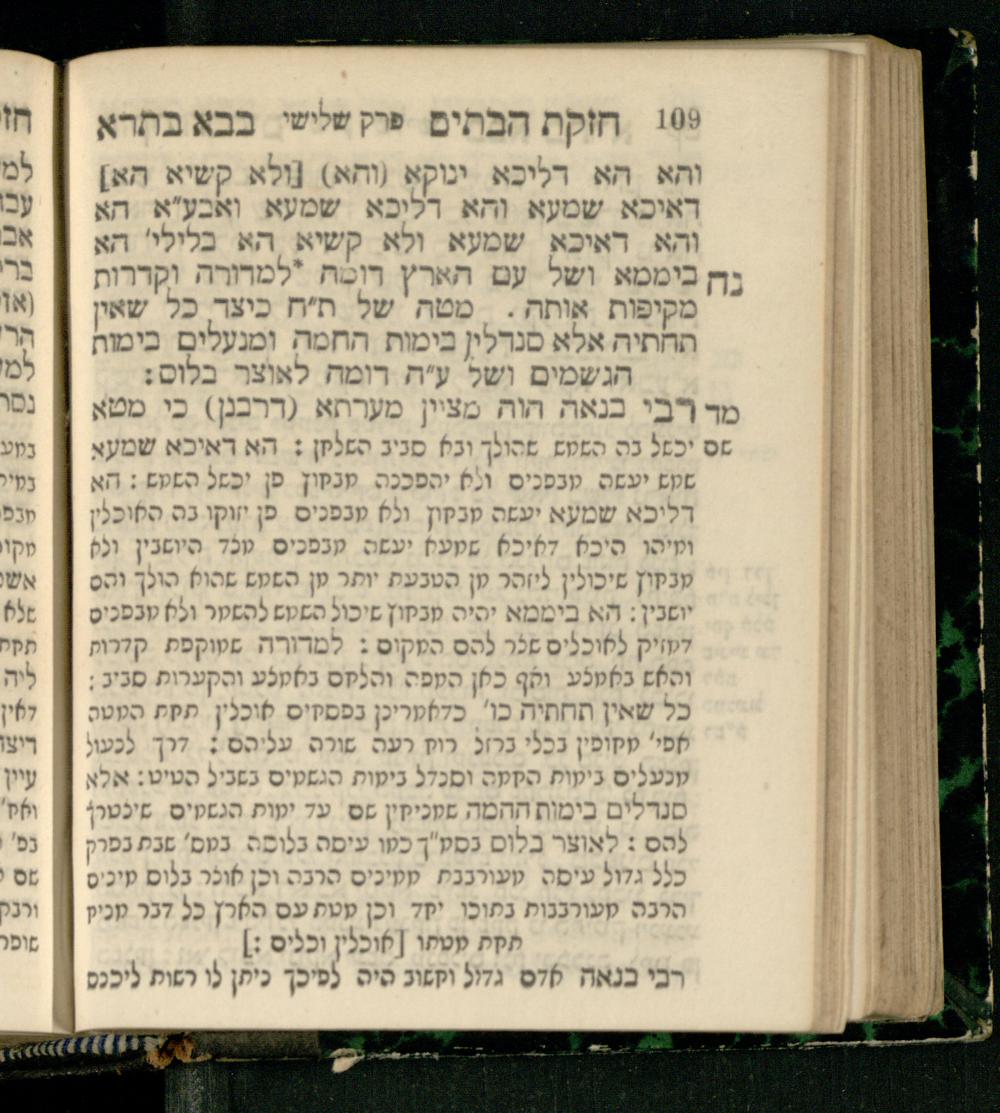 109 חזקת הבתים פרק שלישי בבא בתרא
והא הא דליכא ינוקא (והא) [ולא קשיא הא]
דאיכא שמעא והא דליכא שמעא ואבע״א הא
והא דאיכא שמעא ולא קשיא הא בלילי׳ הא
נח ביממא ושל עם הארץ דומה *למדורה וקדרות
מקיפות אותה. מטה של ת״ח כיצד כל שאין
תחתיה אלא סנדלין בימות החמה ומנעלים בימות
הגשמים ושל ע״ה דומה לאוצר בלום:
מד רבי בנאה הוה מציין מערתא (דרבנן) כי מטא
שם יכשל בה השמש שהולך ובא סביב השלחן: הא דאיכא שמעא
שמש יעשה מבפנים ולא יהפכנה מבחוץ פן יכשל השמש: הא
דליכא שמעא יעשה מבחוץ ולא מבפנים פן יזוקו בה האוכלין
ומיהו היכא דאיכא שמעא יעשה מבפנים מצד היושבין ולא
מבחוץ שיכולין ליזהר מן הטבעת יותר מן השמש שהוא הולך והם
יושבין: הא ביממא יהיה מבחוץ שיכול השמש להשמר ולא מבפנים
דמזיק לאוכלים שצר להם המקום: למדורה שמוקפת קדרות
והאש באמצע ואף כאן המפה והלחם באמצע והקערות סביב:
כל שאין תחתיה כו׳ כדאמרינן בפסחים אוכלין תחת המטה
אפי׳ מחופין בכלי ברזל רוח רעה שורה עליהם: דרך לנעול
מנעלים בימות החמה וסנדל בימות הגשמים בשביל הטיט: אלא
סנדלים בימות החמה שמניחין שם עד ימות הגשמים שיצטרך
להם: לאוצר בלום בסמ״ך כמו עיסה בלוסה במס׳ שבת בפרק
כלל גדול עיסה מעורבבת ממינים הרבה וכן אוצר בלום מינים
הרבה מעורבבות בתוכו יחד וכן מטת עם הארץ כל דבר מניח
תחת מטתו [אוכלין וכלים:]
רבי בנאה אדם גדול וחשוב היה לפיכך ניתן לו רשות ליכנס